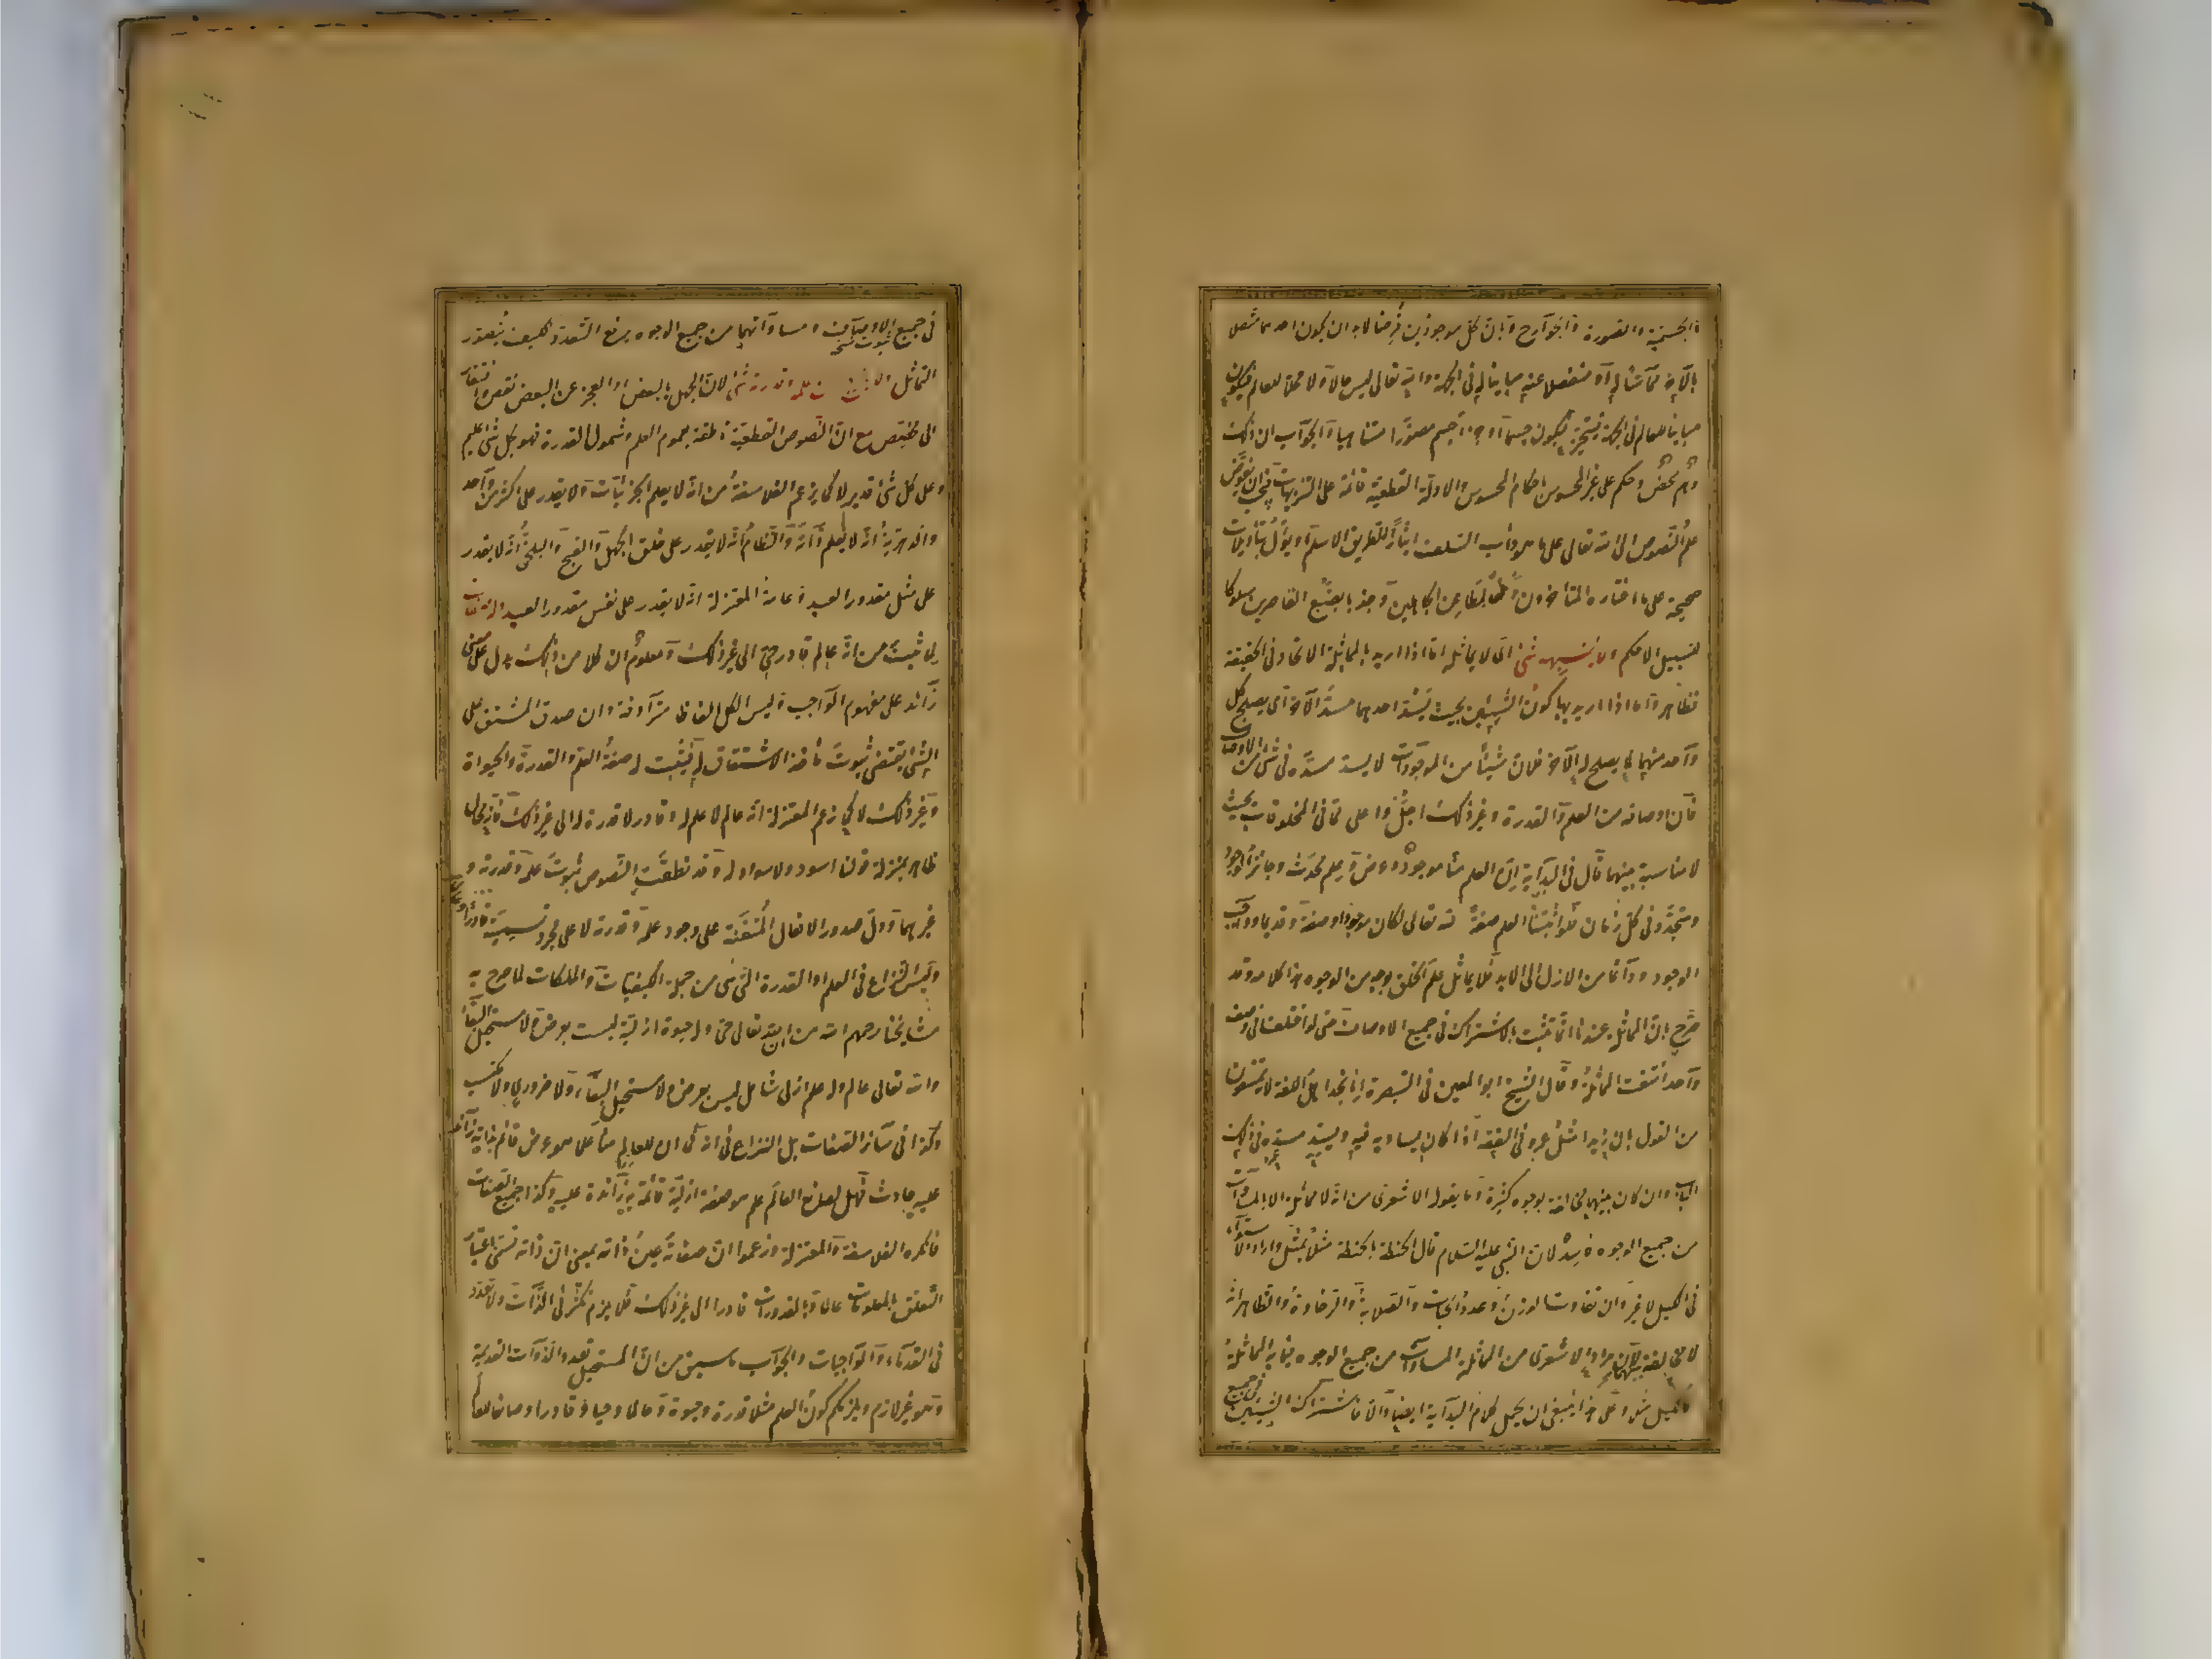 والجسمية والصورة والجوارح وبان كل موجودين فرضا لا بد ان يكون احدهما متصلا
بالآخر مماسا له او منفصلا عنه مباينا له في الجهة والله تعالى ليس حالا ولا محلا للعالم فيكون
مباينا للعالم في الجهة فيتحيز فيكون جسما او جزء جسم مصورا متناهيا والجواب ان ذلك
وهم محض وحكم على غير المحسوس باحكام المحسوس والادلة القطعية قائمة على التنزيهات فيجب ان يفوض
علم النصوص الى الله تعالى على ما هو دأب السلف ايثارا للطريق الاسلم او يؤول بتأويلات
صحيحة على ما اختاره المتأخرون دفعا لمطاعن الجاهلين وجذبا بضبع القاصرين سلوكا
لسبيل الاحكم ولا يشبهه شئ اى لا يماثله اما اذا اريد بالمماثلة الاتحاد في الحقيقة
فظاهر واما اذا اريد بها كون الشيئين بحيث يسد احدهما مسد الآخر اى يصلح كل
واحد منهما لما يصلح له الآخر فلان شيئا من الموجودات لا يسد مسده في شئ من الاوصاف
فان اوصافه من العلم والقدرة وغير ذلك اجل واعلى مما في المخلوقات بحيث
لا مناسبة بينهما قال في البداية ان العلم منا موجود وعرض وعلم محدث وجائز الوجود
ومتجدد في كل زمان فلو اثبتنا العلم صفة لله تعالى لكان موجودا وصفة وقديما وواجب
الوجود ودائما من الازل الى الابد فلا يماثل علم الخلق بوجه من الوجوه هذا كلامه وقد
صرح بان المماثلة عندنا انما تثبت بالاشتراك في جميع الاوصاف حتى لو اختلفا في وصف
واحد انتفت المماثلة وقال الشيخ ابو المعين في التبصرة انا نجد اهل اللغة لا يمتنعون
من القول بان زيدا مثل عمرو في الفقه اذا كان يساويه فيه ويسد مسده في ذلك
الباب وان كان بينهما مخالفة بوجوه كثيرة وما يقوله الاشعرى من انه لا مماثلة الا بالمساوات
من جميع الوجوه فاسد لان النبي عليه السلام قال الحنطة بالحنطة مثلا بمثل واراد الاستواء
في الكيل لا غير وان تفاوت الوزن وعدد الحبات والصلابة والرخاوة والظاهر انه
لا مخالفة بينهما لان مراد الاشعرى من المماثلة المساوات من جميع الوجوه فيما به المماثلة
كالكيل مثلا وعلى هذا ينبغي ان يحمل كلام البداية ايضا والا فاشتراك الشيئين في جميع
في جميع الاوصاف ومساواتهما من جميع الوجوه يرفع التعدد فكيف يتصور
التماثل لان الجهل بالبعض او العجز عن البعض نقص وافتقار
الى مخصص مع ان النصوص القطعية ناطقة بعموم العلم وشمول القدرة فهو بكل شئ عليم
وعلى كل شئ قدير لا كما يزعم الفلاسفة من انه لا يعلم الجزئيات ولا يقدر على اكثر من واحد
والدهرية انه لا يعلم ذاته والنظام انه لا يقدر على خلق الجهل والقبح والبلخى انه لا يقدر
على مثل مقدور العبد وعامة المعتزلة انه لا يقدر على نفس مقدور العبد وله صفات
لما ثبت من انه عالم قادر حي الى غير ذلك ومعلوم ان كلا من ذلك يدل على معنى
زائد على مفهوم الواجب وليس الكل الفاظا مترادفة وان صدق المشتق على
الشئ يقتضى ثبوت مأخذ الاشتقاق له فيثبت له صفة العلم والقدرة والحيوة
وغير ذلك لا كما زعم المعتزلة انه عالم لا علم له وقادر لا قدرة له الى غير ذلك فانه محال
ظاهر بمنزلة قولنا اسود ولا سواد له وقد نطقت النصوص بثبوت علمه وقدرته و
غيرهما ودل صدور الافعال المتقنة على وجود علمه وقدرته لا على مجرد تسميته قادرا وعالما
وليس النزاع في العلم والقدرة التي هي من جملة الكيفيات والملكات لما صرح به
مشايخنا رحمهم الله من ان الله تعالى حي وله حيوة ازلية ليست بعرض ولا مستحيل البقاء
والله تعالى عالم وله علم ازلي شامل ليس بعرض ولا مستحيل البقاء ولا ضرورى ولا مكتسب
وكذا في سائر الصفات بل النزاع في انه كما ان للعالم منا علما هو عرض قائم به زائد
عليه حادث فهل لصانع العالم علم هو صفة ازلية قائمة به زائدة عليه وكذا جميع الصفات
فانكره الفلاسفة والمعتزلة وزعموا ان صفاته عين ذاته بمعنى ان ذاته تسمى باعتبار
التعلق بالمعلومات عالما وبالمقدورات قادرا الى غير ذلك فلا يلزم تكثر في الذات ولا تعدد
في القدماء والواجبات والجواب ما سبق من ان المستحيل تعدد الذوات القديمة
وهو غير لازم ويلزمكم كون العلم مثلا قدرة وحيوة وعالما وحيا وقادرا وصانعا للعالم